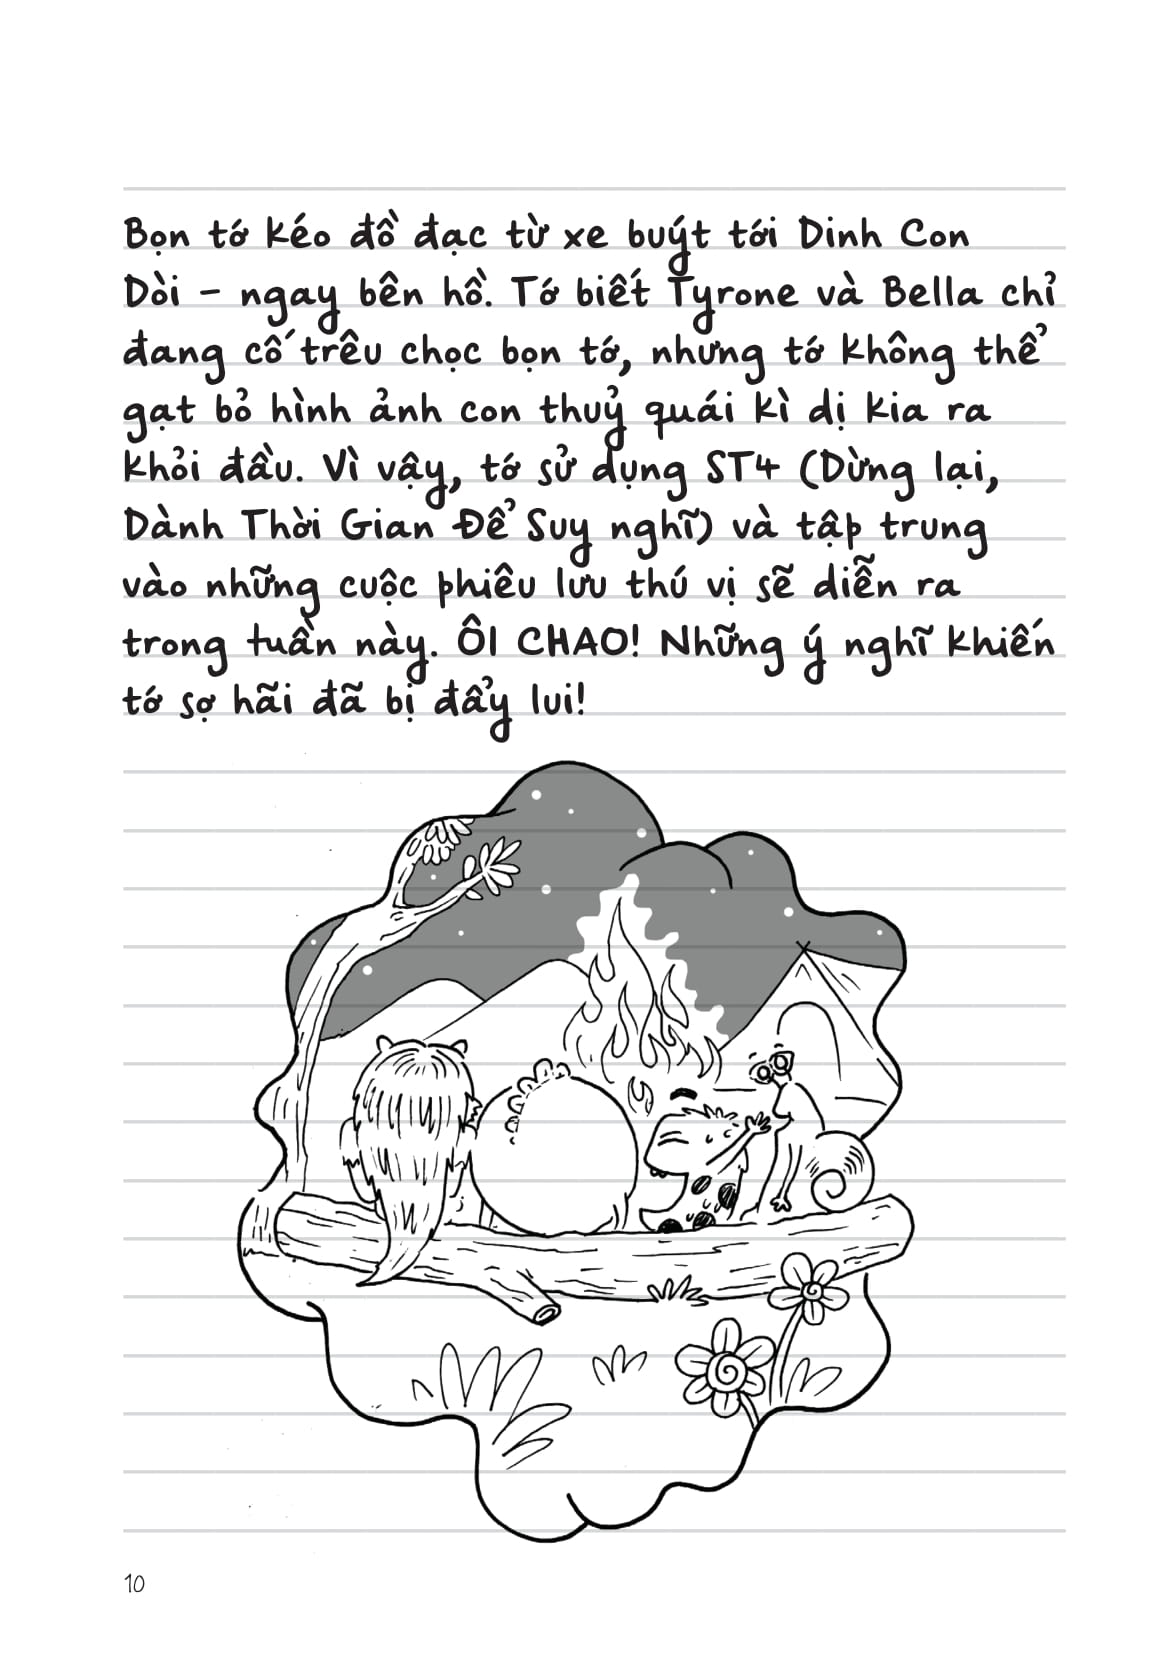 Bọn tớ kéo đồ đạc từ xe buýt tới Dinh Con
Dòi – ngay bên hồ. Tớ biết Tyrone và Bella chỉ
đang cố trêu chọc bọn tớ, nhưng tớ không thể
gạt bỏ hình ảnh con thuỷ quái kì dị kia ra
khỏi đầu. Vì vậy, tớ sử dụng ST4 (Dừng lại,
Dành Thời Gian Để Suy nghĩ) và tập trung
vào những cuộc phiêu lưu thú vị sẽ diễn ra
trong tuần này. ÔI CHAO! Những ý nghĩ khiến
tớ sợ hãi đã bị đẩy lui!
10